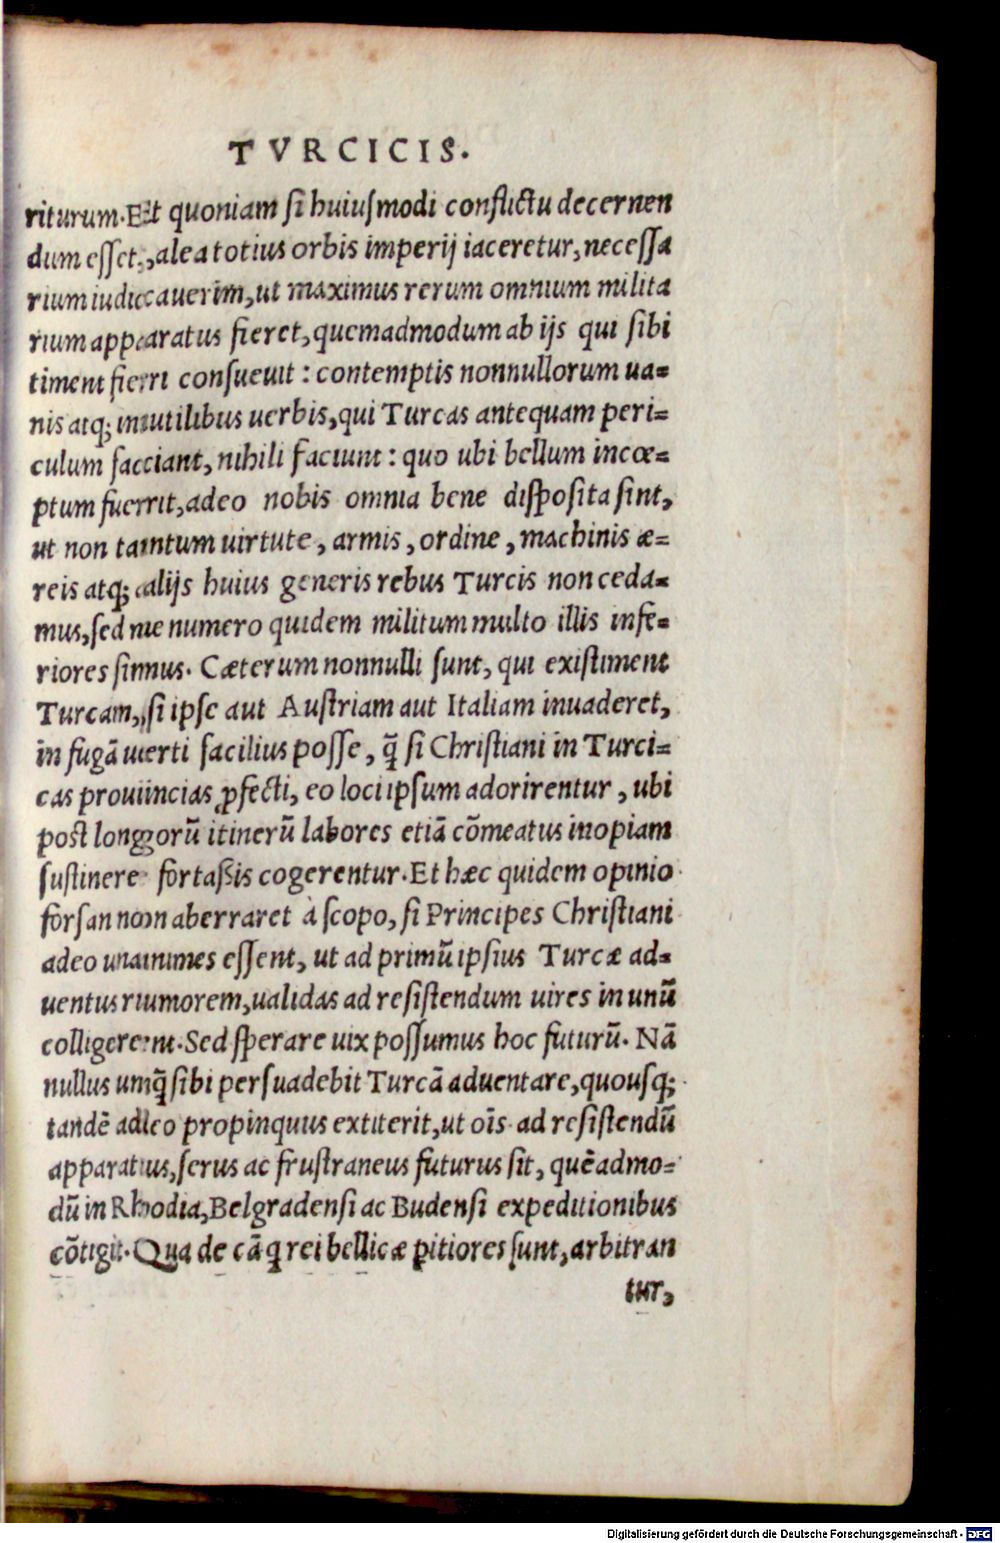 TVRCICIS.
riturum. Et quoniam si huiusmodi conflictu decernen
dum esset, alea totius orbis imperij iaceretur, necessa
rium iudicauerim, ut maximus rerum omnium milita
rium apparatus fieret, quemadmodum ab ijs qui sibi
timent fieri consueuit : contemptis nonnullorum ua=
nis atq; inutilibus uerbis, qui Turcas antequam peri=
culum facciant, nihili faciunt : quo ubi bellum incœ=
ptum fuerit, adeo nobis omnia bene disposita sint,
ut non tantum uirtute, armis, ordine, machinis æ=
reis atq; alijs huius generis rebus Turcis non ceda=
mus, sed ne numero quidem militum multo illis infe=
riores simus. Cæterum nonnulli sunt, qui existiment
Turcam, si ipse aut Austriam aut Italiam inuaderet,
in fugã uerti facilius posse, q̃ si Christiani in Turci=
cas prouincias ꝓfecti, eo loci ipsum adorirentur, ubi
post longorũ itinerũ labores etiã cõmeatus inopiam
sustinere fortaßis cogerentur. Et hæc quidem opinio
forsan non aberraret à scopo, si Principes Christiani
adeo unanimes essent, ut ad primũ ipsius Turcæ ad=
uentus rumorem, ualidas ad resistendum uires in unũ
colligerent. Sed sperare uix possumus hoc futurũ. Nã
nullus umq̃ sibi persuadebit Turcã aduentare, quousq;
tandẽ adeo propinquus extiterit, ut oĩs ad resistendũ
apparatus, serus ac frustraneus futurus sit, quẽadmo=
dũ in Rhodia, Belgradensi ac Budensi expeditionibus
cõtigit. Qua de cã q rei bellicæ ꝑitiores sunt, arbitran
tur,
Digitalisierung gefördert durch die Deutsche Forschungsgemeinschaft - DFG